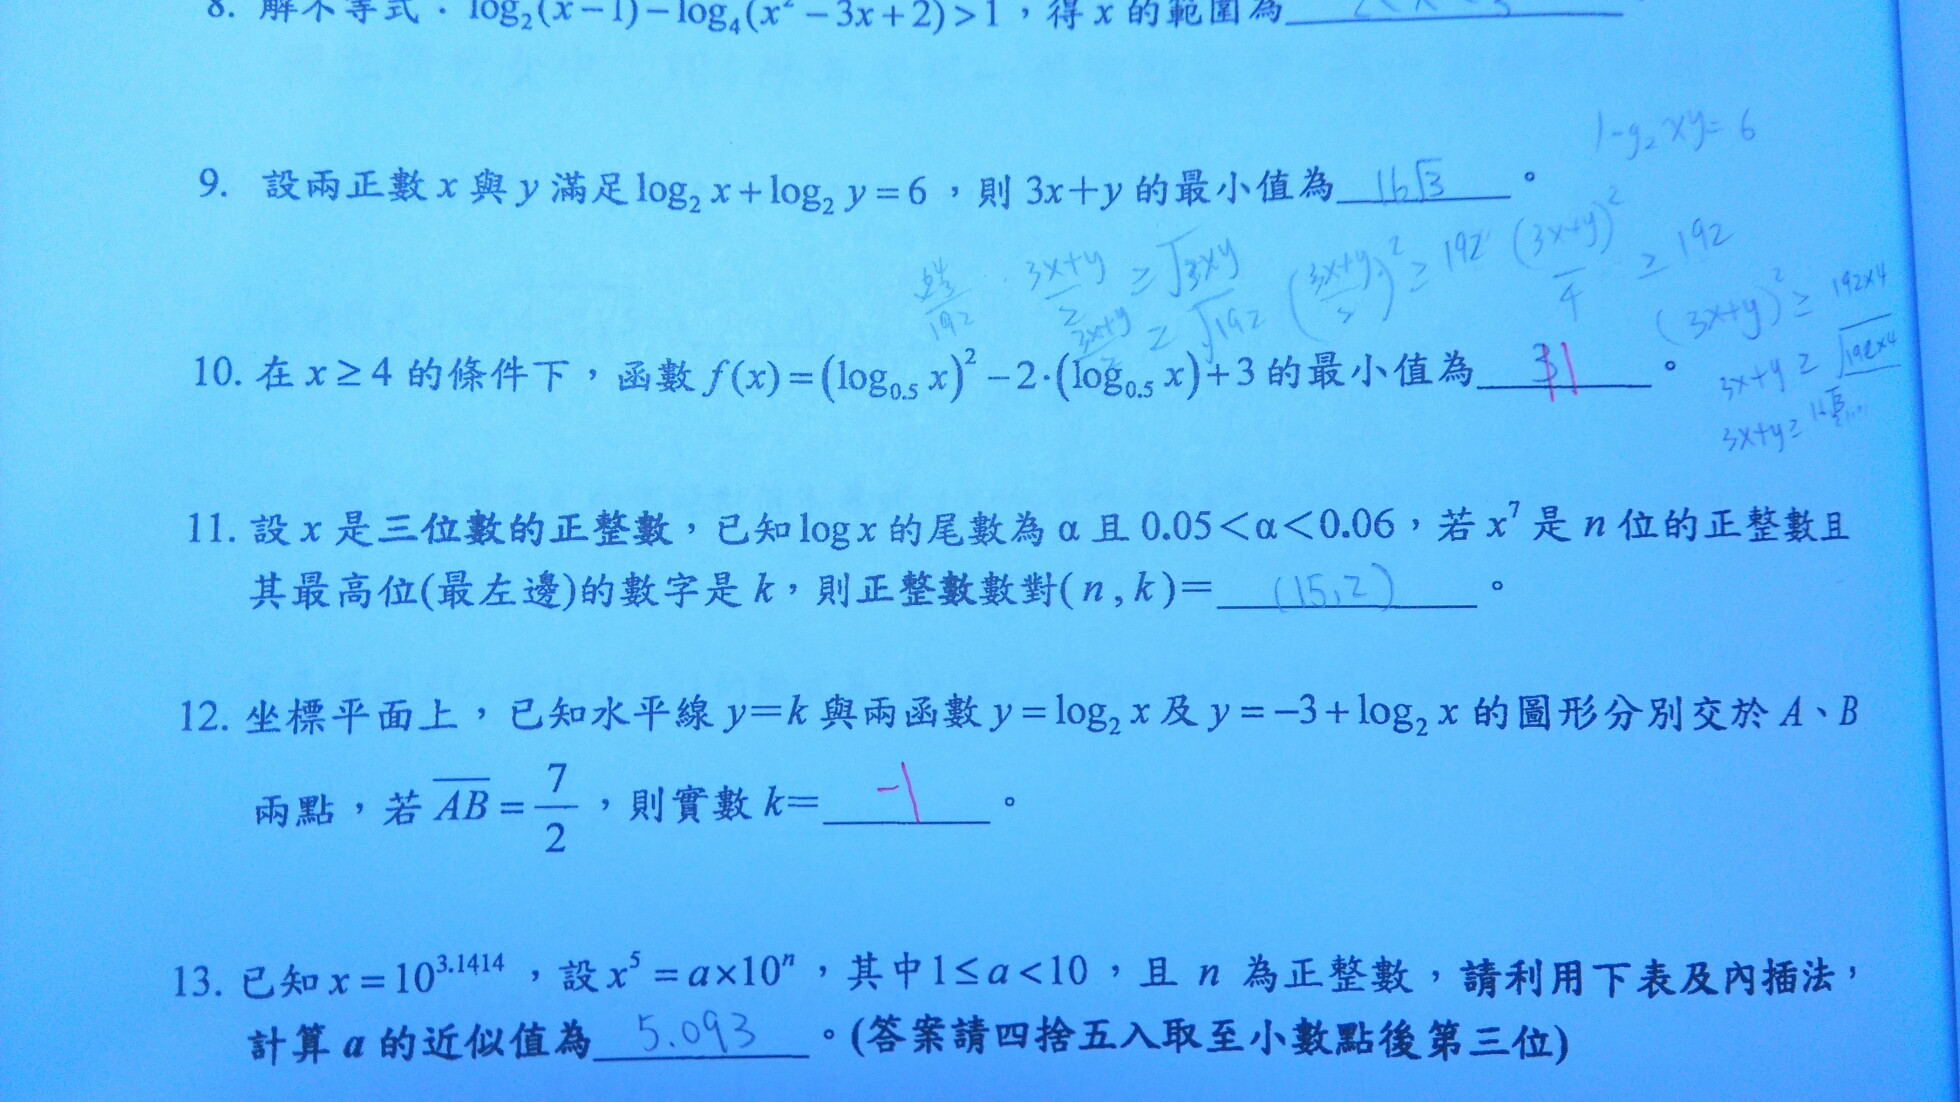 8. 解不等式：log₂(x−1)−log₄(x²−3x+2)>1，得 x 的範圍為
log₂xy=6
9. 設兩正數 x 與 y 滿足 log₂ x+log₂ y=6，則 3x+y 的最小值為 16√3。
192 (3x+y)/2 ≥ √3xy ((3x+y)/2)² ≥ 192 (3x+y)²/4 ≥ 192
(3x+y)/2 ≥ √192 (3x+y)² ≥ 192×4
3x+y ≥ √192×4
3x+y ≥
10. 在 x≥4 的條件下，函數 f(x)=(log₀.₅ x)²−2·(log₀.₅ x)+3 的最小值為 11。
11. 設 x 是三位數的正整數，已知 log x 的尾數為 α 且 0.05<α<0.06，若 x⁷ 是 n 位的正整數且
其最高位(最左邊)的數字是 k，則正整數數對(n,k)= (15,2)。
12. 坐標平面上，已知水平線 y=k 與兩函數 y=log₂ x 及 y=−3+log₂ x 的圖形分別交於 A、B
兩點，若 AB=7/2，則實數 k= −1。
13. 已知 x=10^3.1414，設 x⁵=a×10ⁿ，其中 1≤a<10，且 n 為正整數，請利用下表及內插法，
計算 a 的近似值為 5.093。(答案請四捨五入取至小數點後第三位)